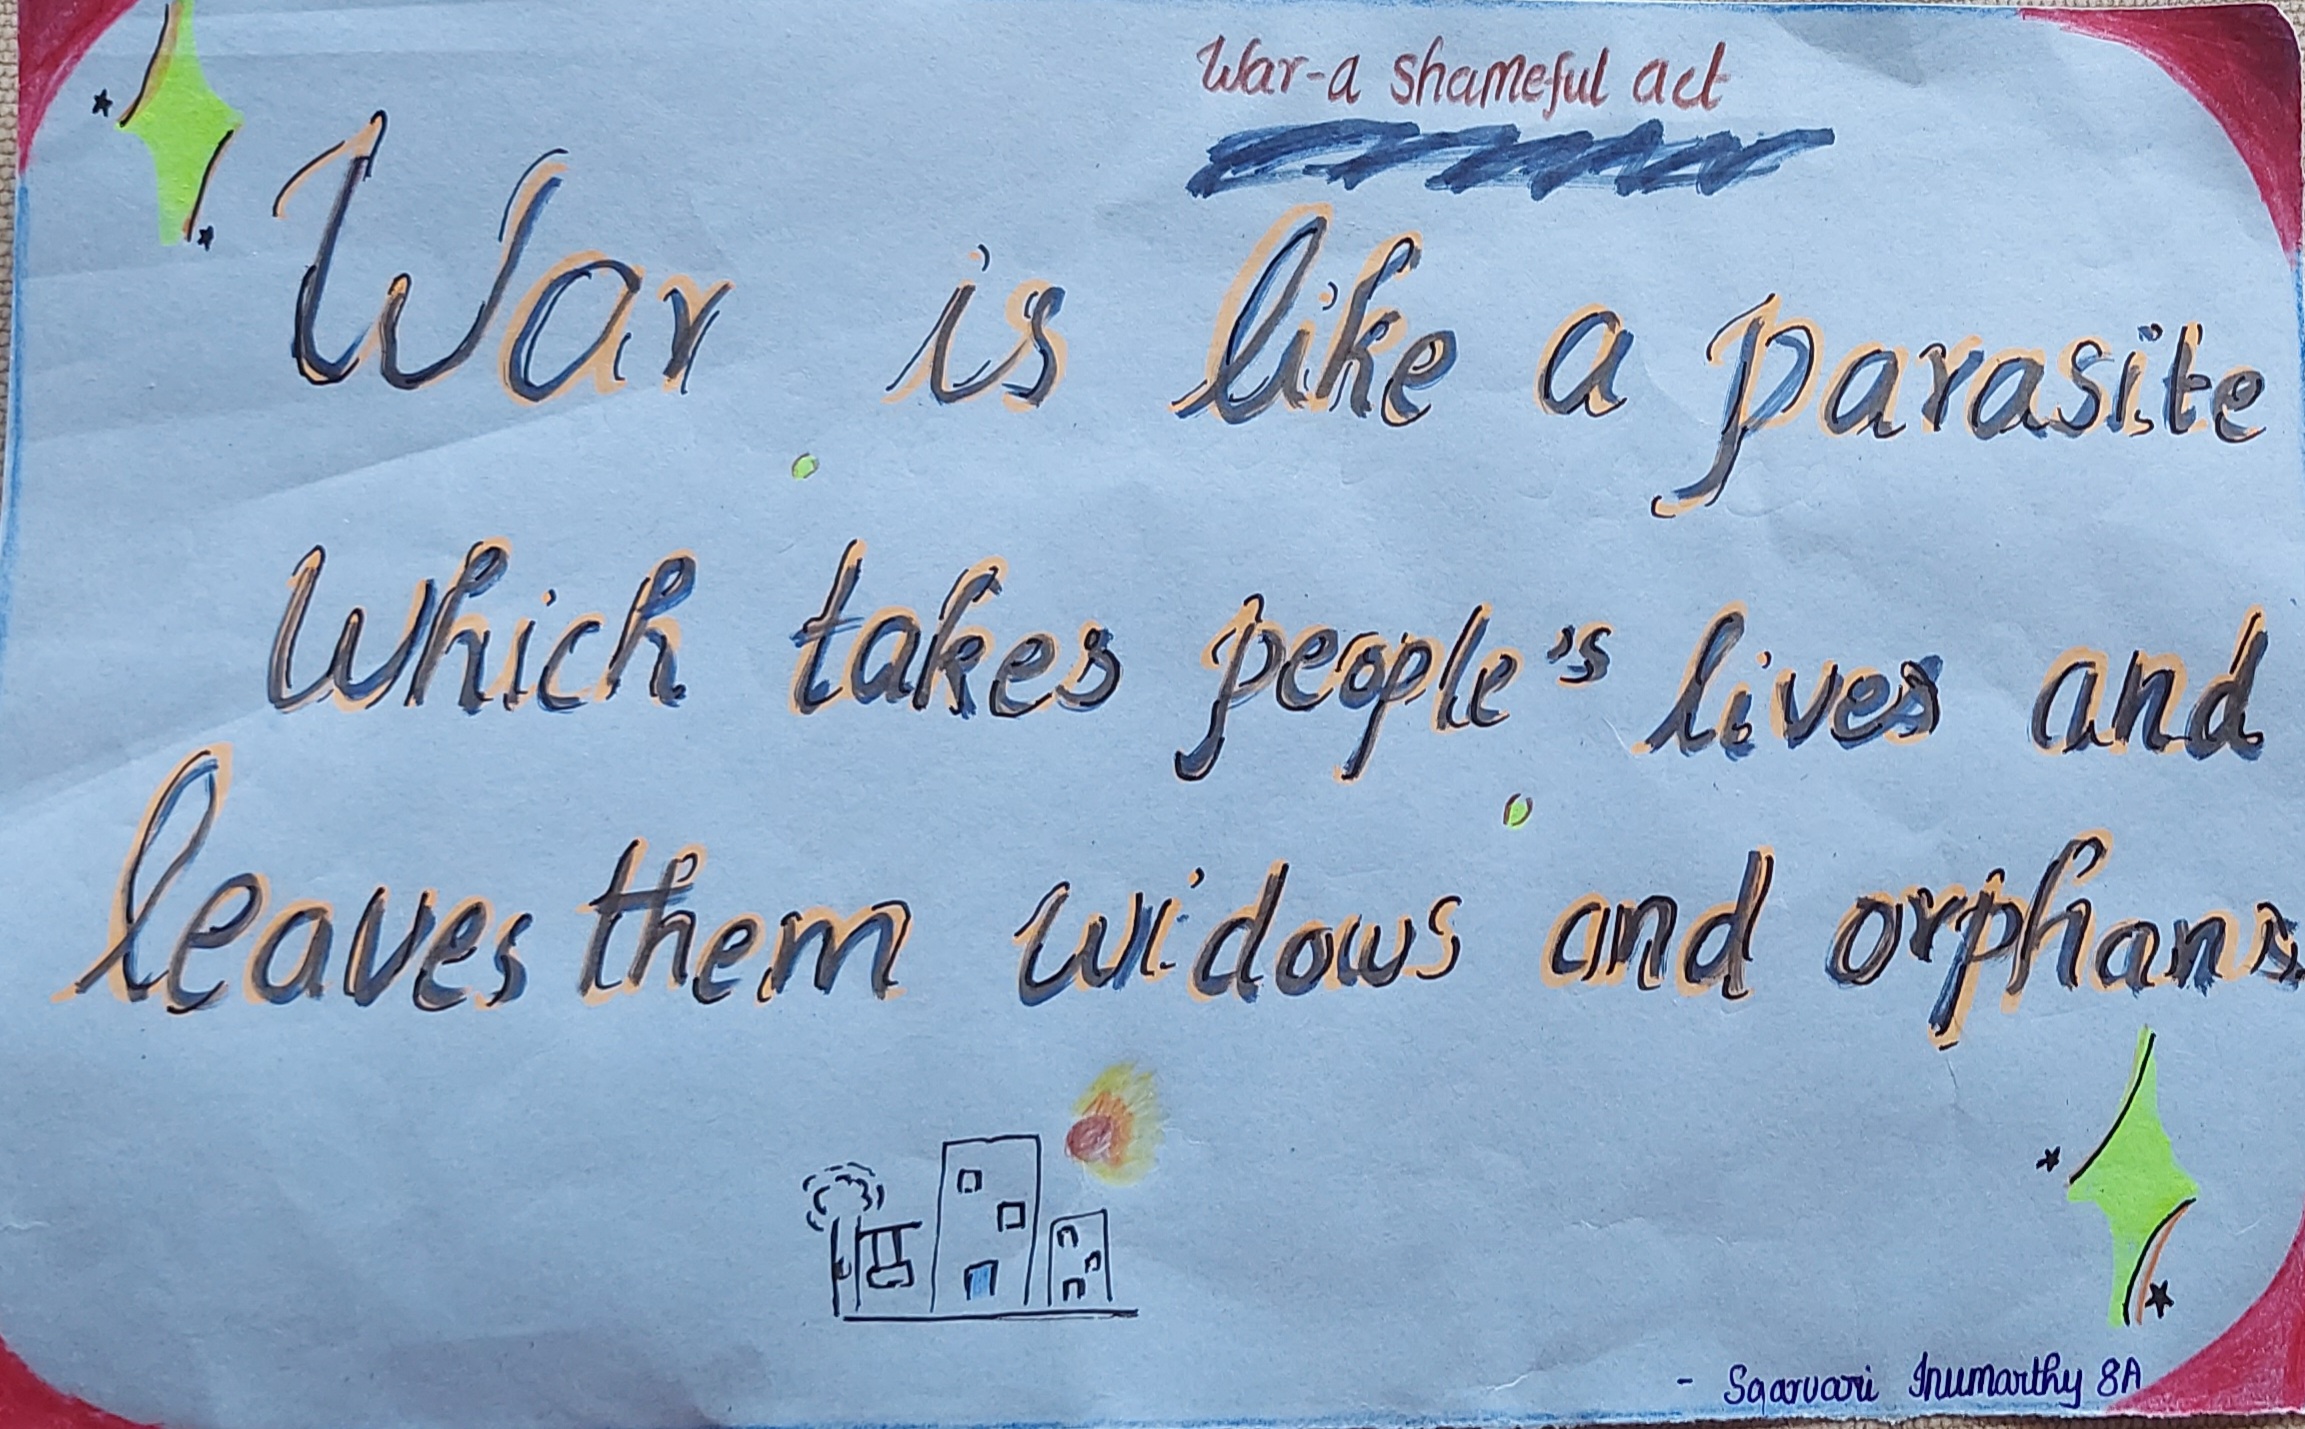 War-a shameful act
War is like a parasite
which takes people's lives and
leaves them widows and orphans
- Saarvari Inumarthy 8A